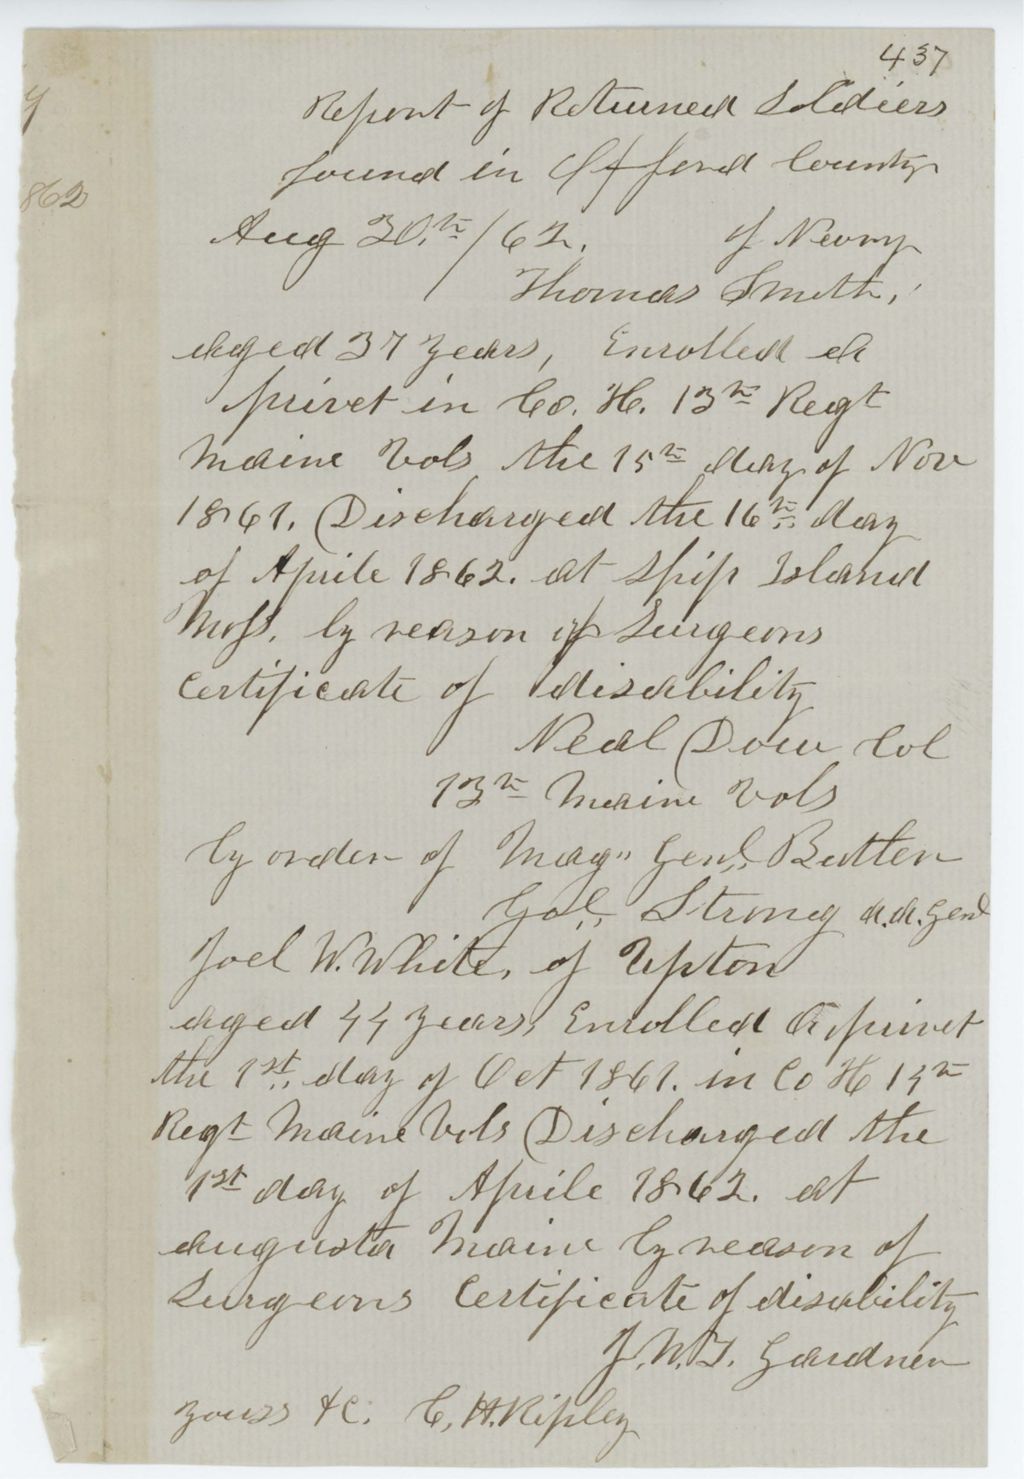 437
Report of Returned Soldiers
found in Oxford County
Aug 30.th /62. of Newry
Thomas Smith,
aged 37 years, Enrolled a
privet in Co. H. 13th Regt
Maine Vols the 15th day of Nov
1861. Discharged the 16th day
of Aprile 1862. at Ship Island
Miss. by reason of Surgeons
Certificate of disability
Neal Dow Col
13th Maine Vols
by order of Maj" Genl. Butler
Strong A.A. Genl
Joel W. White, of Upton
aged 44 years, Enrolled a privet
the 1st. day of Oct 1861. in Co H 14th
Regt Maine Vols Discharged the
1st day of Aprile 1862. at
Augusta Maine by reason of
Surgeons Certificate of disability
J.W.T. Gardner
yours &C. C, H. Ripley
y
862